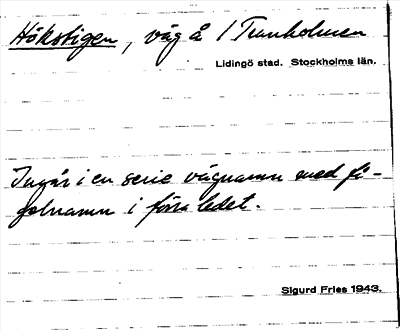 Hökstigen, väg å / Tranholmen
Lidingö stad. Stockholms län.
Ingår i en serie vägnamn med få-
gelnamn i förra ledet.
Sigurd Fries 1943.